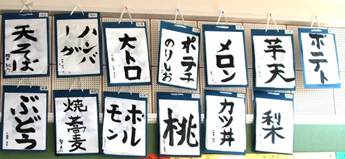 天そば
ハンバーグ
大トロ
ポテチ
のりしお
メロン
芋天
ポテト
ぶどう
焼蕎麦
ホルモン
桃
カツ丼
梨